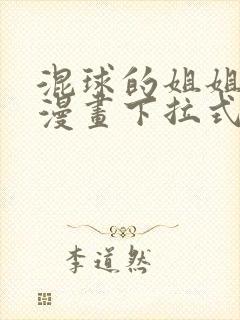 混球的姐姐
漫畫下拉式
李道然